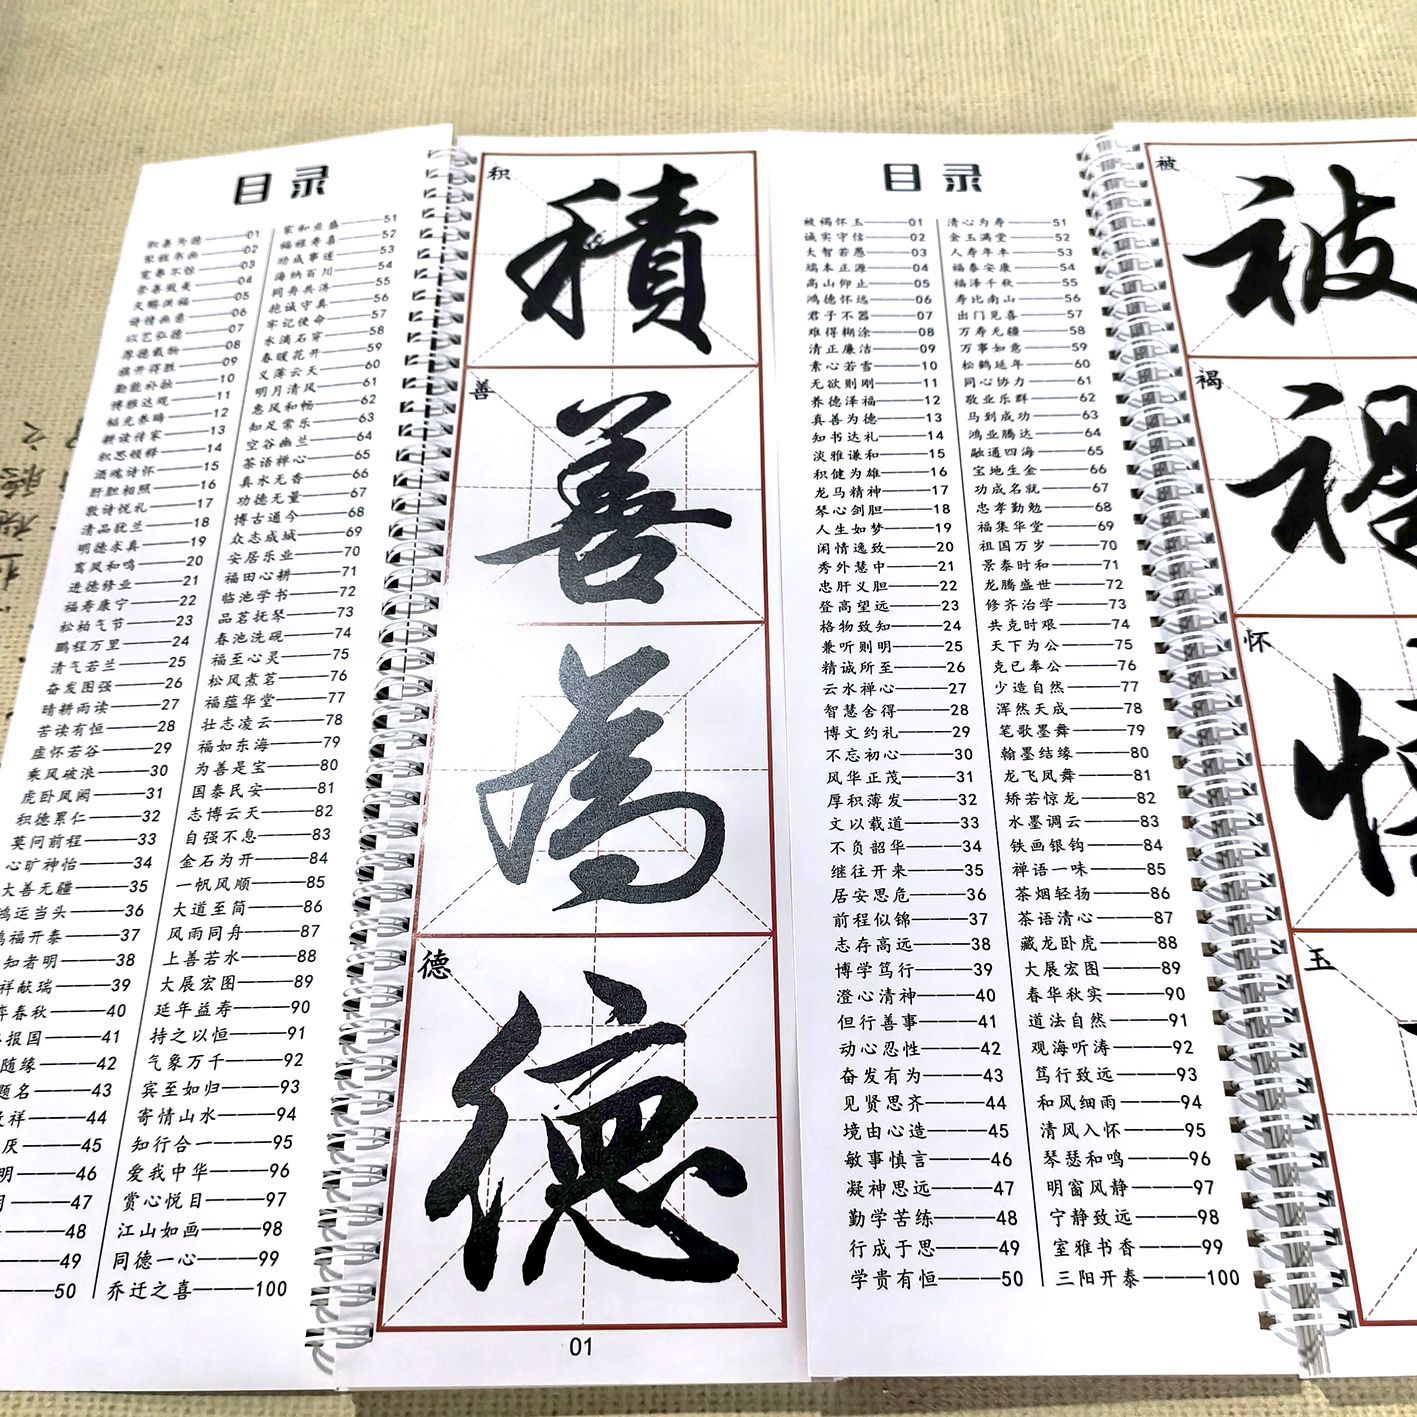 目录
积善为德——01
03
文赐洪福——05
诗情画意——06
欣艺弘德——07
厚德载物——08
旗开得胜——09
勤能补拙——10
博雅达观——11
福光养晦——12
耕读传家——13
积思顿释——14
酒魂诗怀——15
肝胆相照——16
敦诗悦礼——17
清品犹兰——18
明德求真——19
鸾凤和鸣——20
进德修业——21
福寿康宁——22
松柏气节——23
鹏程万里——24
清气若兰——25
奋发图强——26
晴耕雨读——27
苦读有恒——28
虚怀若谷——29
乘风破浪——30
虎卧凤阙——31
积德累仁——32
莫问前程——33
心旷神怡——34
大善无疆——35
鸿运当头——36
福开泰——37
知者明——38
祥献瑞——39
春秋——40
报国——41
随缘——42
题名——43
祥——44
厌——45
明——46
47
48
49
50
家和业盛——51
福雅寿喜——52
功成事遂——53
海纳百川——54
同舟共济——55
抱诚守真——56
牢记使命——57
水滴石穿——58
春暖花开——59
义薄云天——60
明月清风——61
惠风和畅——62
知足常乐——63
空谷幽兰——64
茶语禅心——65
真水无香——66
功德无量——67
博古通今——68
众志成城——69
安居乐业——70
福田心耕——71
临池学书——72
品茗抚琴——73
春池洗砚——74
福至心灵——75
松风煮茗——76
福蕴华堂——77
壮志凌云——78
福如东海——79
为善是宝——80
国泰民安——81
志博云天——82
自强不息——83
金石为开——84
一帆风顺——85
大道至简——86
风雨同舟——87
上善若水——88
大展宏图——89
延年益寿——90
持之以恒——91
气象万千——92
宾至如归——93
寄情山水——94
知行合一——95
爱我中华——96
赏心悦目——97
江山如画——98
同德一心——99
乔迁之喜——100
积
積
善
善
為
德
德
01
目录
被褐怀玉——01
诚实守信——02
大智若愚——03
端本正源——04
高山仰止——05
鸿德怀远——06
君子不器——07
难得糊涂——08
清正廉洁——09
素心若雪——10
无欲则刚——11
养德泽福——12
真善为德——13
知书达礼——14
淡雅谦和——15
积健为雄——16
龙马精神——17
琴心剑胆——18
人生如梦——19
闲情逸致——20
秀外慧中——21
忠肝义胆——22
登高望远——23
格物致知——24
兼听则明——25
精诚所至——26
云水禅心——27
智慧舍得——28
博文约礼——29
不忘初心——30
风华正茂——31
厚积薄发——32
文以载道——33
不负韶华——34
继往开来——35
居安思危——36
前程似锦——37
志存高远——38
博学笃行——39
澄心清神——40
但行善事——41
动心忍性——42
奋发有为——43
见贤思齐——44
境由心造——45
敏事慎言——46
凝神思远——47
勤学苦练——48
行成于思——49
学贵有恒——50
清心为寿——51
金玉满堂——52
人寿年丰——53
福泰安康——54
福泽千秋——55
寿比南山——56
出门见喜——57
万寿无疆——58
万事如意——59
松鹤延年——60
同心协力——61
敬业乐群——62
马到成功——63
鸿业腾达——64
融通四海——65
宝地生金——66
功成名就——67
忠孝勤勉——68
福集华堂——69
祖国万岁——70
景泰时和——71
龙腾盛世——72
修齐治学——73
共克时艰——74
天下为公——75
克已奉公——76
少造自然——77
浑然天成——78
笔歌墨舞——79
翰墨结缘——80
龙飞凤舞——81
矫若惊龙——82
水墨调云——83
铁画银钩——84
禅语一味——85
茶烟轻扬——86
茶语清心——87
藏龙卧虎——88
大展宏图——89
春华秋实——90
道法自然——91
观海听涛——92
笃行致远——93
和风细雨——94
清风入怀——95
琴瑟和鸣——96
明窗风静——97
宁静致远——98
室雅书香——99
三阳开泰——100
被
被
褐
褐
怀
玉